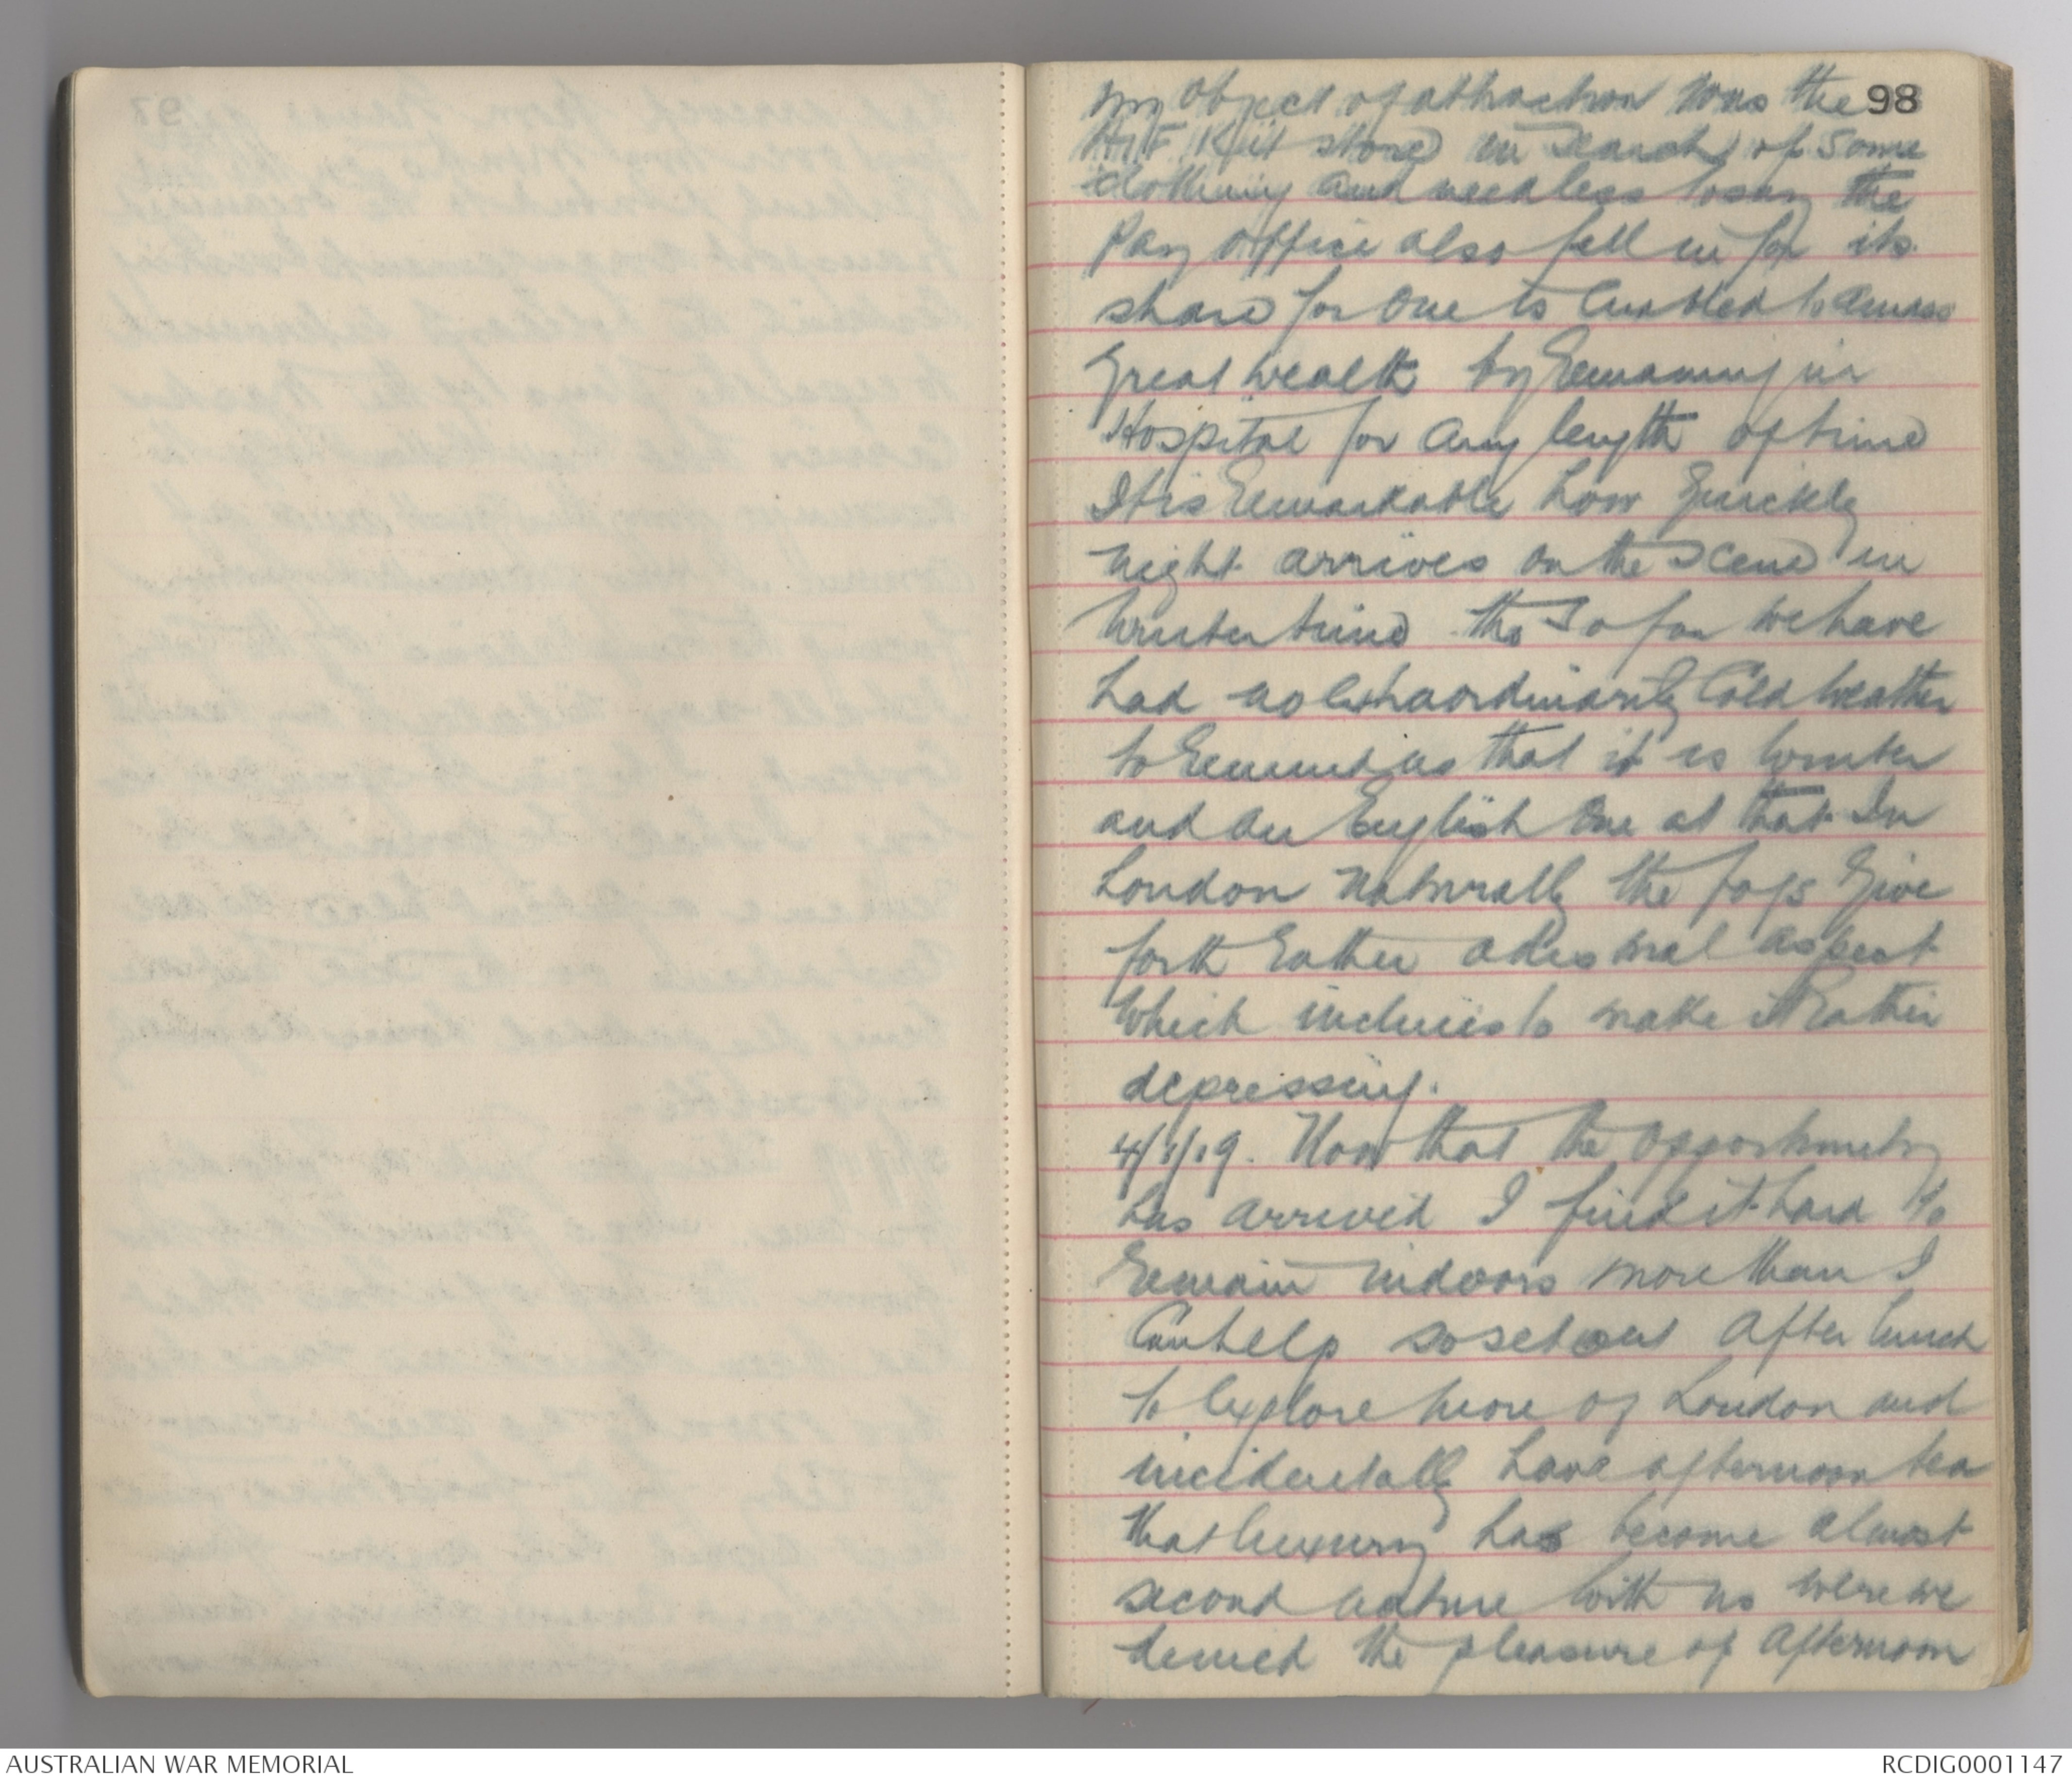 98
My object of attraction was the
A.I.F. Kit store in search of some
clothing and needless to say the
Pay Office also fell in for its
share for one is enabled to amass
great wealth by remaining in
Hospital for any length of time
It is remarkable how quickly
night arrives on the scene in
winter time tho so far we have
had no extraordinarily cold weather
to remind us that it is winter
and an English one at that. In
London naturally the fogs give
forth rather a dismal aspect
which inclines to make it rather
depressing.
4/1/19. Now that the opportunity
has arrived I find it hard to
remain indoors more than I
can help so set out after lunch
to explore more of London and
incidentally have afternoon tea
that luxury has become almost
second nature with us were we
denied the pleasure of afternoon
AUSTRALIAN WAR MEMORIAL
RCDIG0001147